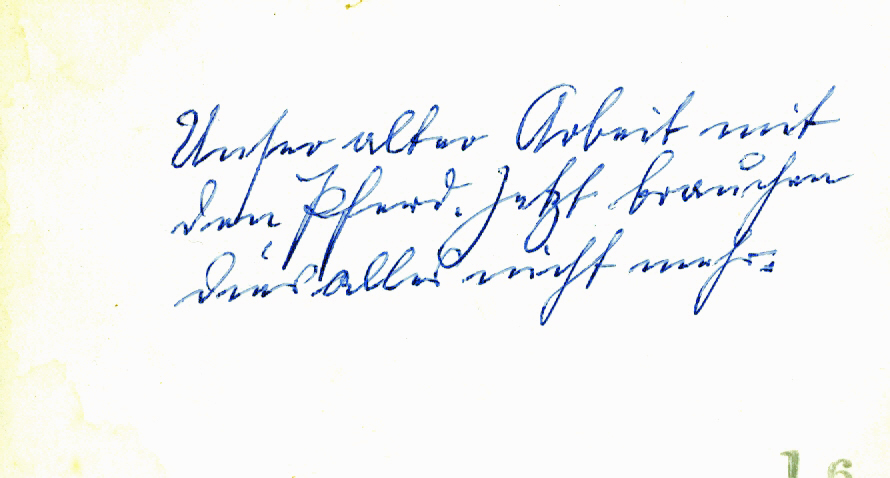 Unser alter Arbeit mit
den Pferd. Jetzt brauchen
dies alles nicht mehr.
16